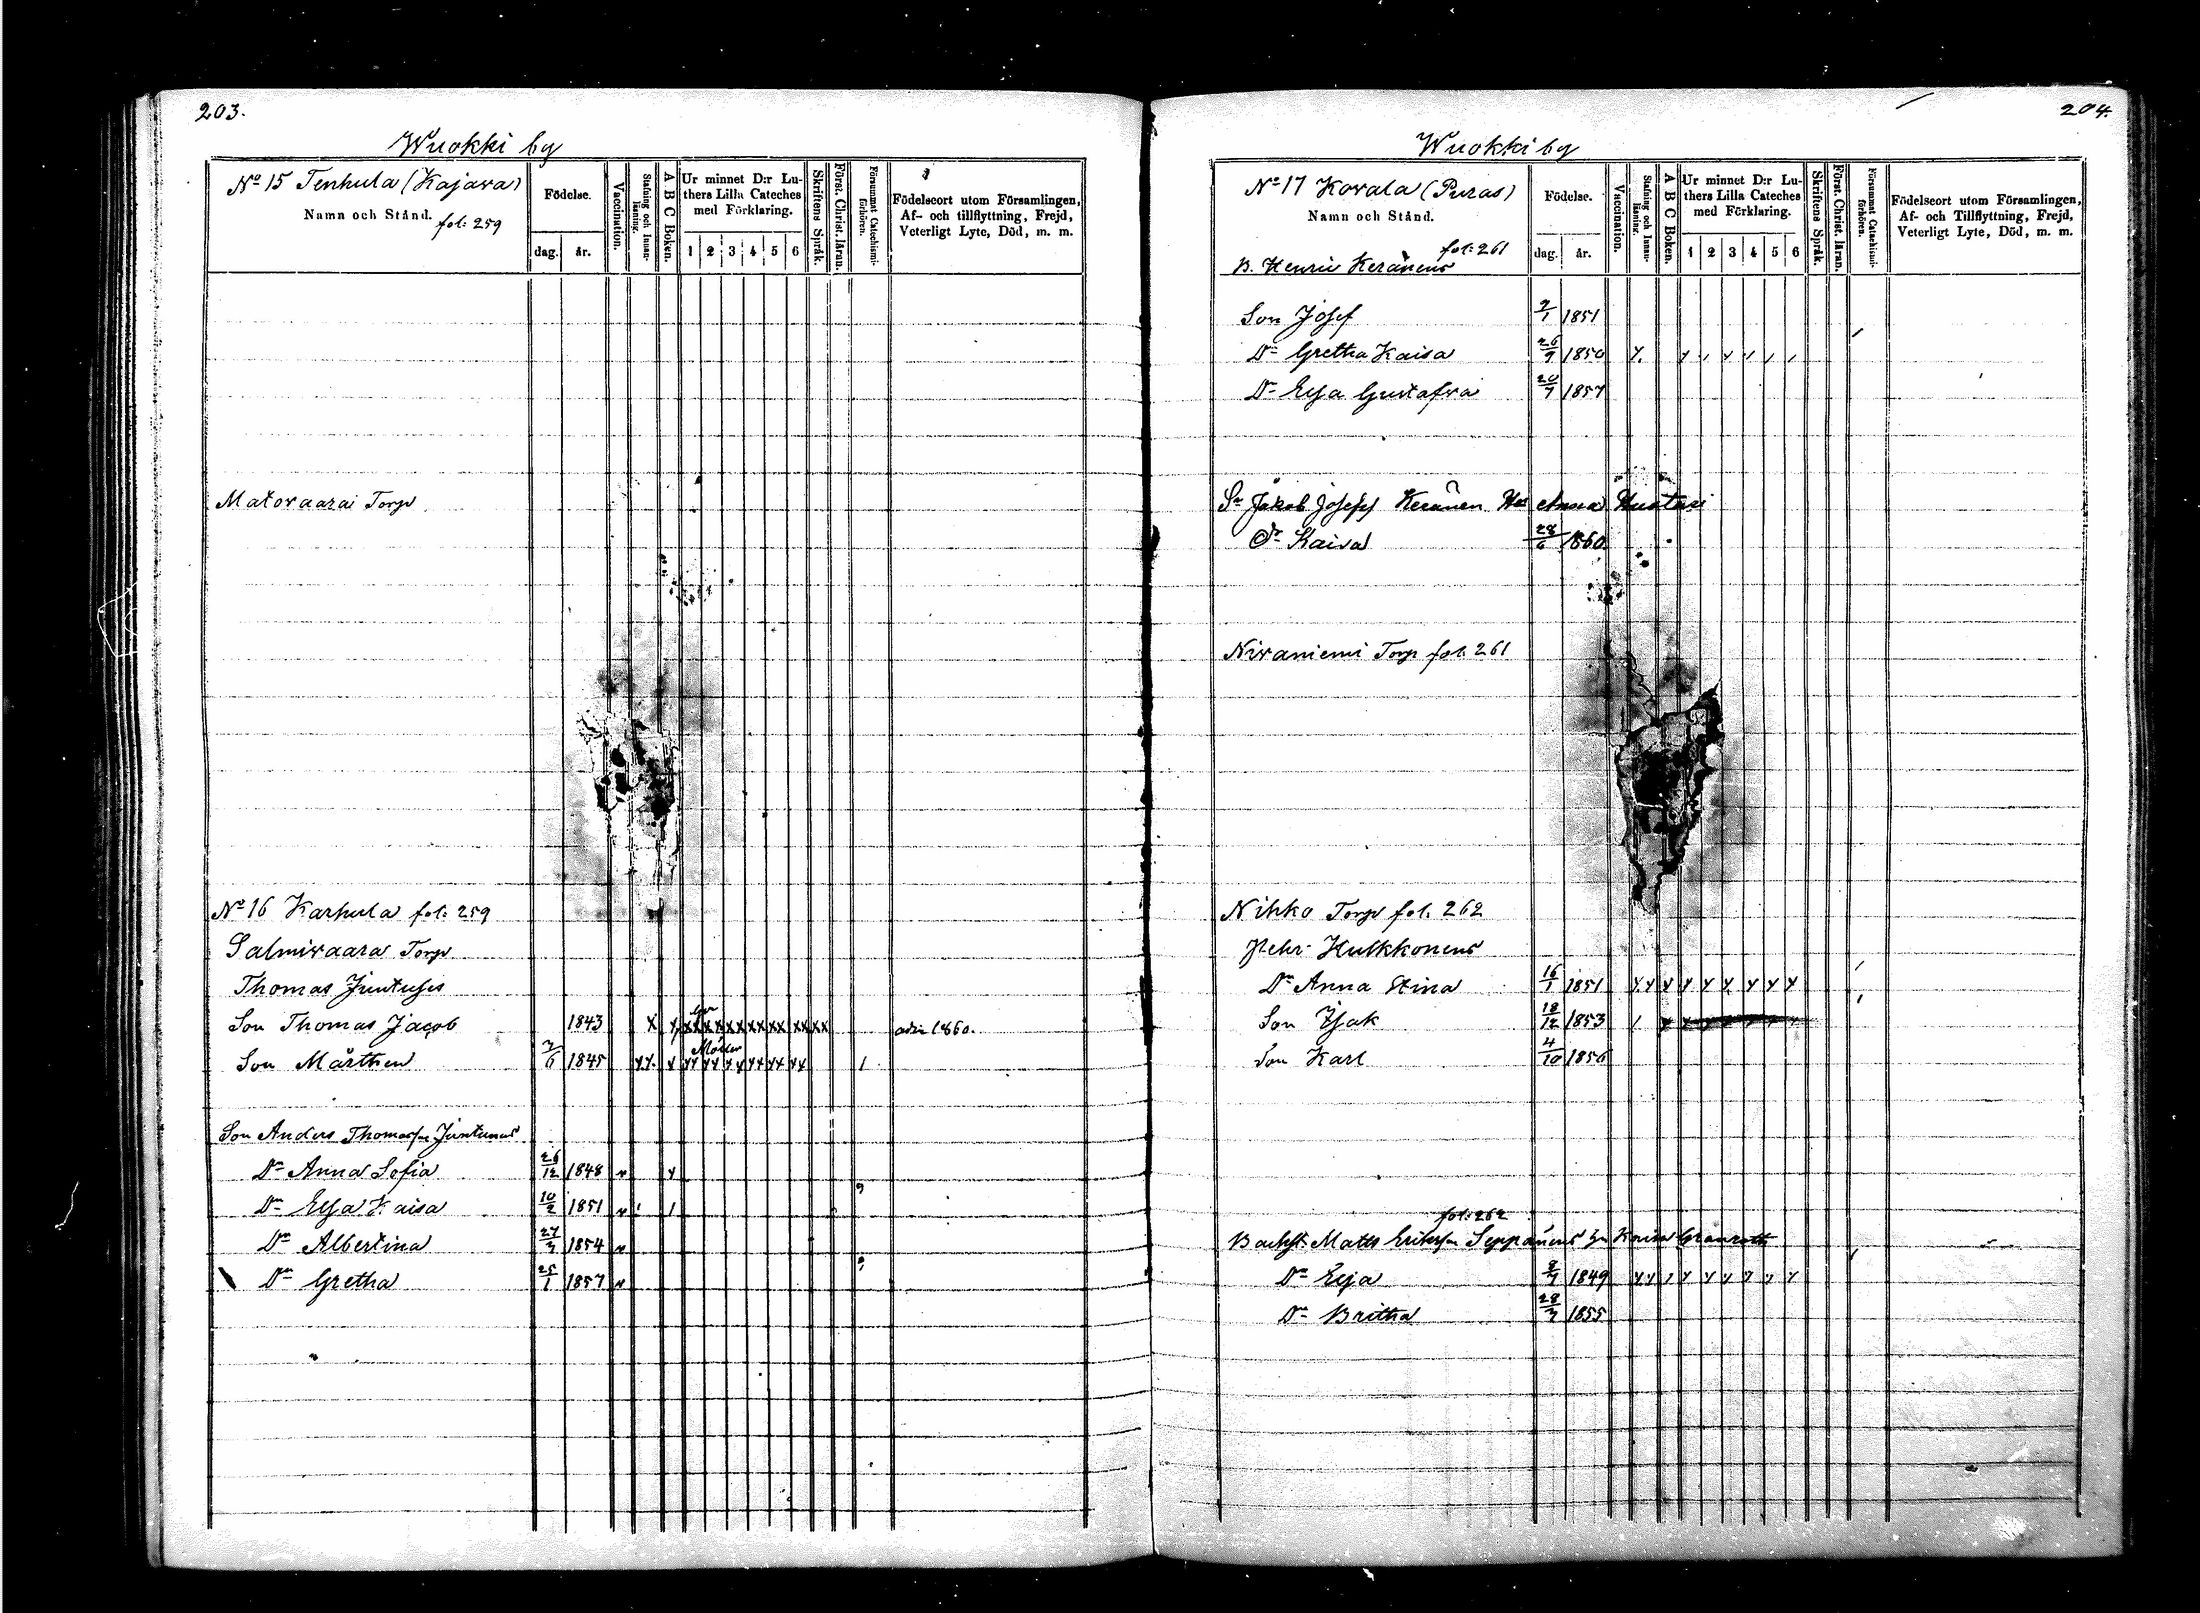 203.
Wuokki by
No 15 Tenhula (Kajava)
Namn och Stånd.
fol: 259
Födelse.
dag. år.
Vaccination.
Stafning och Innanläsning.
A B C Boken.
Ur minnet D:r Luthers Lilla Cateches med Förklaring.
1 2 3 4 5 6
Skriftens Språk.
Först. Christ. läran.
Försummat Catechismiförhören.
Födelseort utom Församlingen, Af- och tillflyttning, Frejd, Veterligt Lyte, Död, m. m.
Matovaara Torp
No 16 Karhula fol: 259
Salmivaara Torp
Thomas Juntuses
Son Thomas Jacob 1843
1860.
Son Mårthen 1845
Son Anders Juntunens
Dr Anna Sofia 26/12 1848
Dr Elsa Kaisa 10/2 1851
Dr Albertina 27/3 1854
Dr Gretha 25/1 1857
204.
Wuokki by
No 17 Kovala (Puras)
Namn och Stånd.
fol: 261
B. Henric Keränens
Födelse.
dag. år.
Vaccination.
Stafning och Innanläsning.
A B C Boken.
Ur minnet D:r Luthers Lilla Cateches med Förklaring.
1 2 3 4 5 6
Skriftens Språk.
Först. Christ. läran.
Försummat Catechismiförhören.
Födelseort utom Församlingen, Af- och Tillflyttning, Frejd, Veterligt Lyte, Död, m. m.
Son Josef 1851
Dr Gretha Kaisa 26/9 1850
Dr Elsa Gustafva 20/7 1857
Jakob Josefss Keränen Anna
Dr Kaisa 28/6 1860
Nivaniemi Torp fol. 261
Nihko Torp fol. 262
Pehr Hulkkonens
Dr Anna Stina 16/1 1851
Son Isak 18/12 1853
Son Karl 4/10 1856
fol: 262
Matts Eriksson Seppänens Kaisa Granroth
Dr Elsa 1849
Dr Britha 28/3 1855